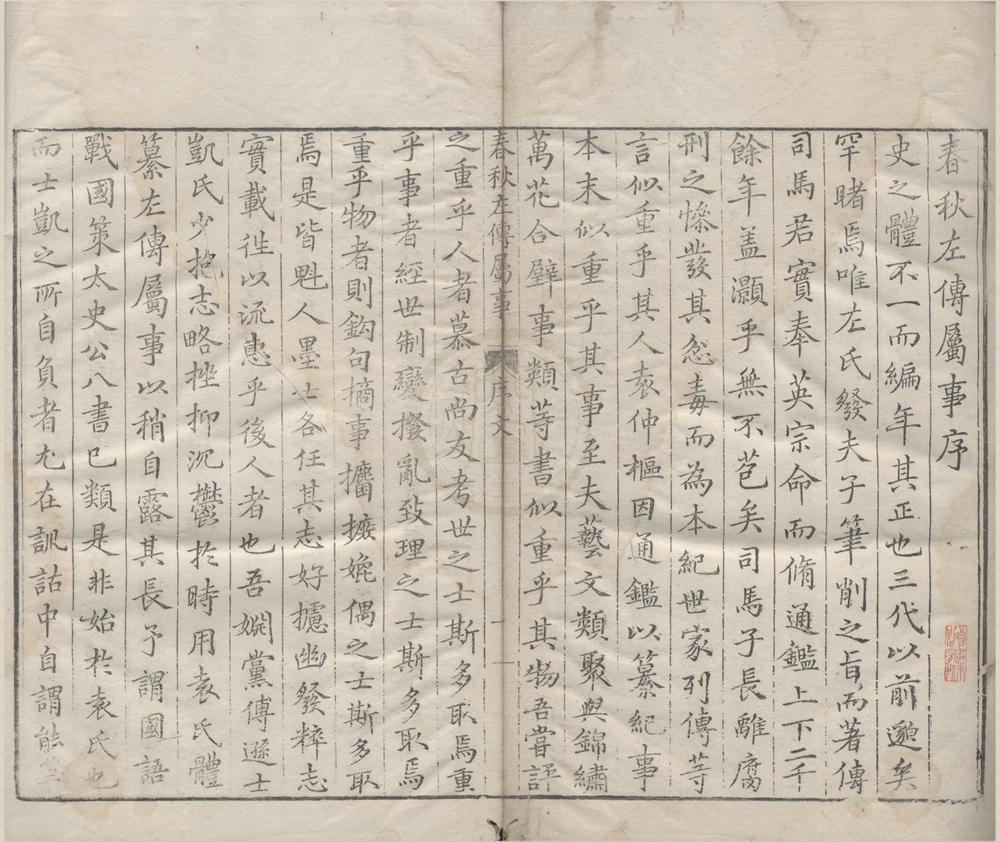 春秋左傳屬事序
史之體不一而編年其正也三代以前邈矣
罕睹焉唯左氏發夫子筆削之旨而著傳
司馬君實奉英宗命而脩通鑑上下二千
餘年盖灝乎無不苞矣司馬子長離腐
刑之慘發其忿毒而為本紀世家列傳等
言似重乎其人袁仲樞因通鑑以纂紀事
本末似重乎其事至夫藝文類聚與錦繡
萬花合璧事類等書似重乎其物吾嘗評
春秋左傳屬事 序文 一
之重乎人者慕古尚友考世之士斯多取焉重
乎事者經世制變撥亂致理之士斯多取焉
重乎物者則鈎句摘事攟摭媲偶之士斯多取
焉是皆魁人墨士各任其志好攄幽發粹志
實載徃以流惠乎後人者也吾婣黨傅遜士
凱氏少抱志略挫抑沉鬱於時用袁氏體
纂左傳屬事以稍自露其長予謂國語
戰國策太史公八書已類是非始於袁氏也
而士凱之所自負者尤在訊詁中自謂能